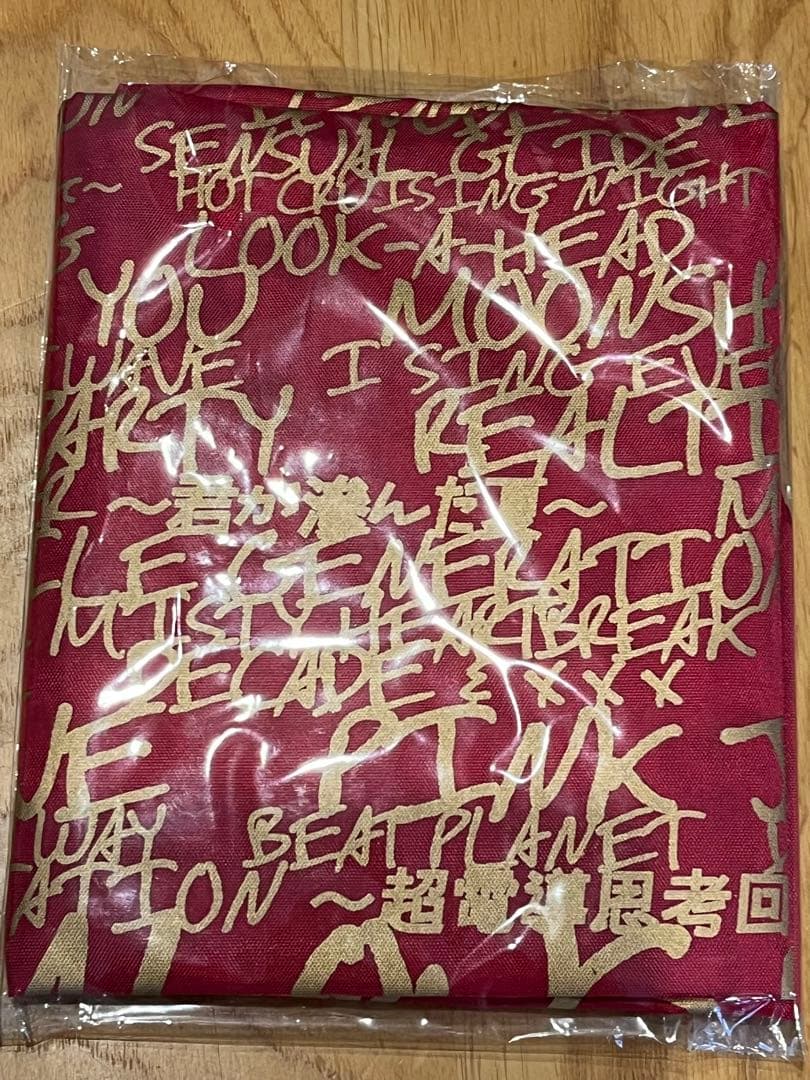 SENSUAL GLIDE
HOT CRUISING NIGHT
LOOK-A-HEAD
YOU MOONSH
WAVE I SING EVE
PARTY REALTI
～君が澄んだ夏～ M
LE GENERATIO
MISTY HEARTBREAK
DECADE & ×××
UE PINK
-WAY BEAT PLANET
ATION ～超電導思考回